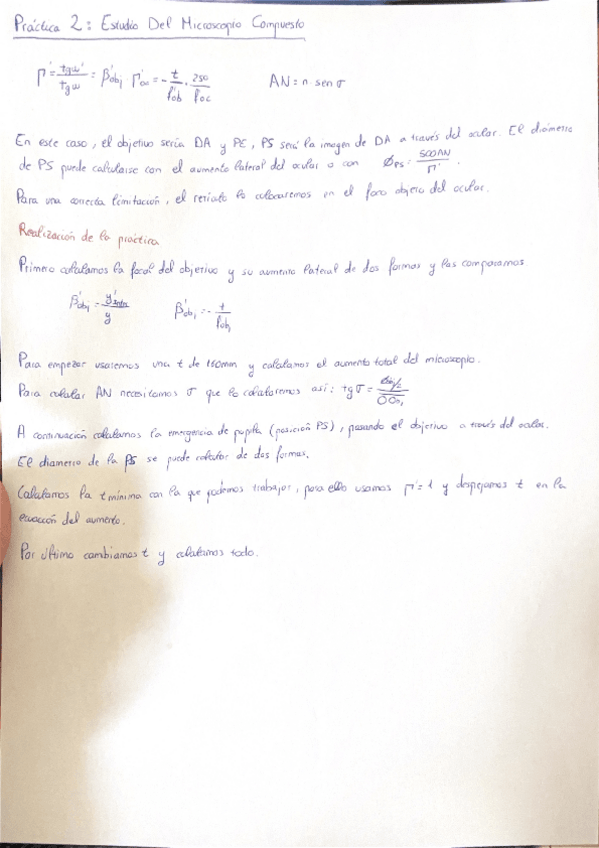 Práctica 2: Estudio Del Microscopio Compuesto
Γ' = tg w' / tg w = β'obj · Γ'oc = - t / f'ob · 250 / f'oc    AN = n · sen σ
En este caso, el objetivo sería DA y PE, PS será la imagen de DA a través del ocular. El diámetro
de PS puede calcularse con el aumento lateral del ocular o con Ø PS = 500AN / Γ' .
Para una correcta limitación, el retículo lo colocaremos en el foco objeto del ocular.
Realización de la práctica
Primero calculamos la focal del objetivo y su aumento lateral de dos formas y las comparamos.
β'obj = y'intm / y    β'obj = - t / f'obj
Para empezar usaremos una t de 160mm y calculamos el aumento total del microscopio.
Para calcular AN necesitamos σ que lo calcularemos así: tg σ =
A continuación calculamos la emergencia de pupila (posición PS), pasando el objetivo a través del ocular.
El diametro de la PS se puede calcular de dos formas.
Calculamos la t mínima con la que podemos trabajar, para ello usamos Γ' = 1 y despejamos t en la
ecuación del aumento.
Por último cambiamos t y calculamos todo.